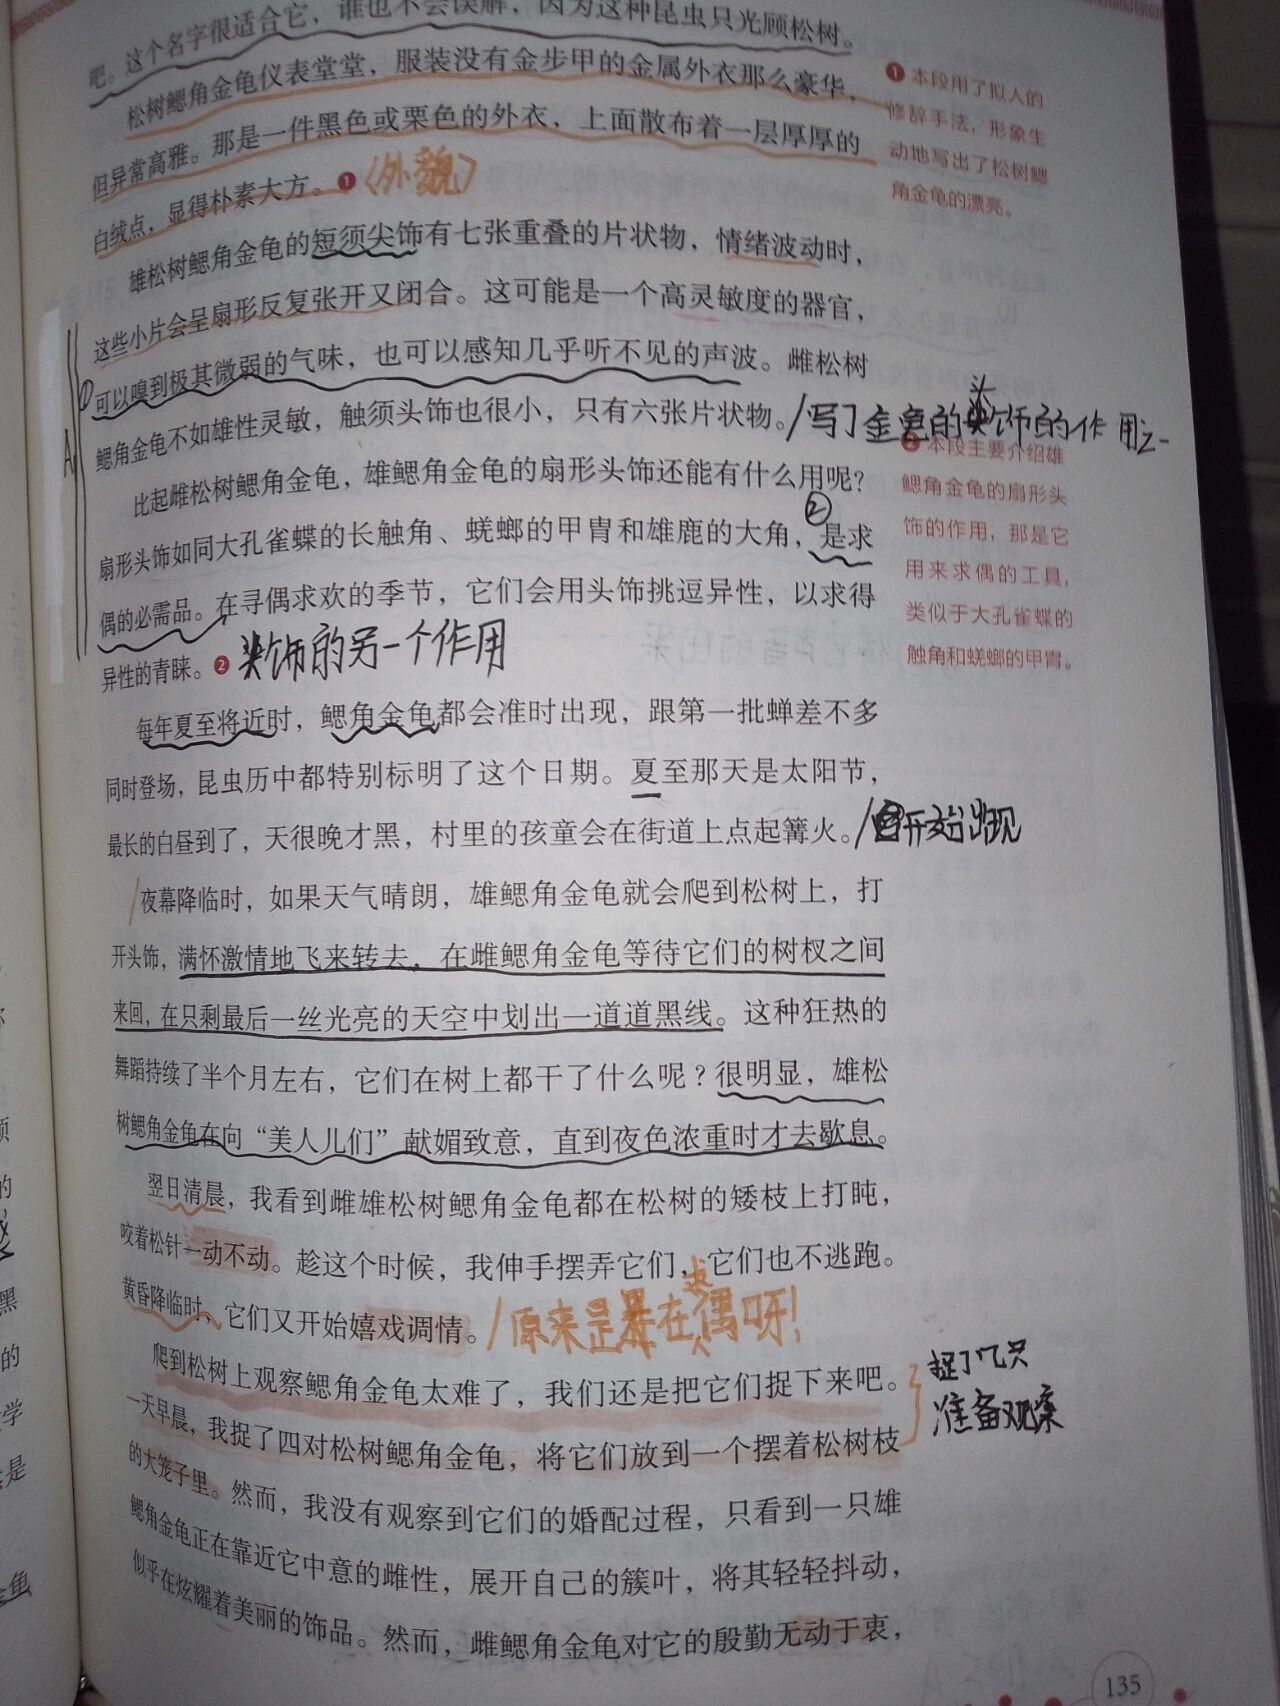 吧。这个名字很适合它，谁也不会误解，因为这种昆虫只光顾松树。
松树鳃角金龟仪表堂堂，服装没有金步甲的金属外衣那么豪华，
但异常高雅。那是一件黑色或栗色的外衣，上面散布着一层厚厚的
白绒点，显得朴素大方。❶〈外貌〉
❶本段用了拟人的
修辞手法，形象生
动地写出了松树鳃
角金龟的漂亮。
雄松树鳃角金龟的短须尖饰有七张重叠的片状物，情绪波动时，
这些小片会呈扇形反复张开又闭合。这可能是一个高灵敏度的器官，
①可以嗅到极其微弱的气味，也可以感知几乎听不见的声波。雌松树
A
鳃角金龟不如雄性灵敏，触须头饰也很小，只有六张片状物。/写了金龟的头饰的作用之一
比起雌松树鳃角金龟，雄鳃角金龟的扇形头饰还能有什么用呢？
扇形头饰如同大孔雀蝶的长触角、蜣螂的甲胄和雄鹿的大角，②是求
偶的必需品。在寻偶求欢的季节，它们会用头饰挑逗异性，以求得
异性的青睐。❷头饰的另一个作用
❷本段主要介绍雄
鳃角金龟的扇形头
饰的作用，那是它
用来求偶的工具，
类似于大孔雀蝶的
触角和蜣螂的甲胄。
每年夏至将近时，鳃角金龟都会准时出现，跟第一批蝉差不多
同时登场，昆虫历中都特别标明了这个日期。夏至那天是太阳节，
最长的白昼到了，天很晚才黑，村里的孩童会在街道上点起篝火。/开始出现
/夜幕降临时，如果天气晴朗，雄鳃角金龟就会爬到松树上，打
开头饰，满怀激情地飞来转去，在雌鳃角金龟等待它们的树杈之间
来回，在只剩最后一丝光亮的天空中划出一道道黑线。这种狂热的
舞蹈持续了半个月左右，它们在树上都干了什么呢？很明显，雄松
树鳃角金龟在向“美人儿们”献媚致意，直到夜色浓重时才去歇息。
翌日清晨，我看到雌雄松树鳃角金龟都在松树的矮枝上打盹，
咬着松针一动不动。趁这个时候，我伸手摆弄它们，它们也不逃跑。
黄昏降临时，它们又开始嬉戏调情。/原来是在求偶呀！
爬到松树上观察鳃角金龟太难了，我们还是把它们捉下来吧。
一天早晨，我捉了四对松树鳃角金龟，将它们放到一个摆着松树枝
捉了几只
准备观察
的大笼子里。然而，我没有观察到它们的婚配过程，只看到一只雄
鳃角金龟正在靠近它中意的雌性，展开自己的簇叶，将其轻轻抖动，
似乎在炫耀着美丽的饰品。然而，雌鳃角金龟对它的殷勤无动于衷，
135